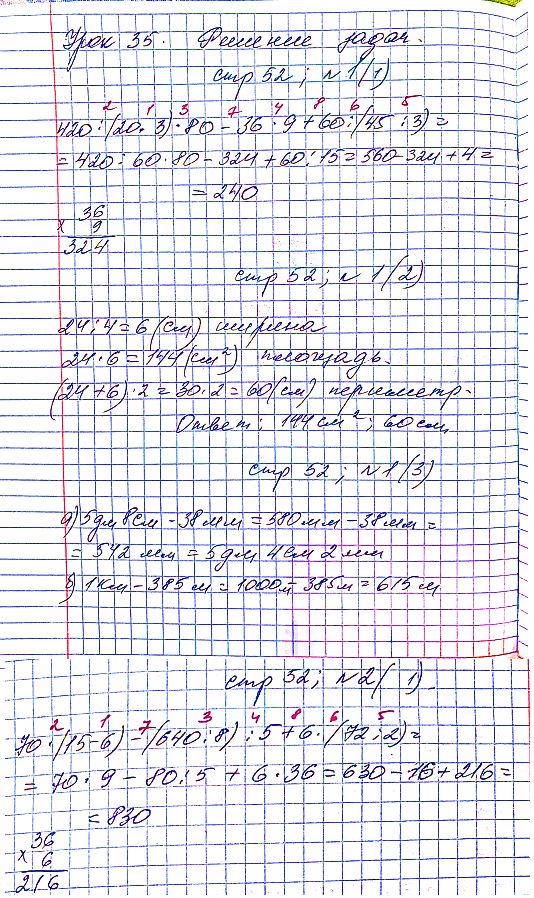 Урок 35. Решение задач.
стр 52; № 1(1)
2 1 3 7 4 8 6 5
420:(20·3)·80-36·9+60:(45:3)=
=420:60·80-324+60:15=560-324+4=
=240
36
x 9
324
стр 52; № 1(2)
24:4=6(см) ширина
24·6=144(см²) площадь.
(24+6)·2=30·2=60(см) периметр.
Ответ: 144 см²; 60 см.
стр 52; № 1(3)
а) 5дм 8см - 38мм = 580мм - 38мм =
= 542 мм = 5дм 4см 2мм
б) 1км - 385м = 1000м - 385м = 615м
стр 52; № 2(1)
2 1 7 3 4 8 6 5
70·(15-6)-(640:8):5+6·(72:2)=
= 70·9 - 80:5 + 6·36 = 630 - 16 + 216 =
= 830
36
x 6
216